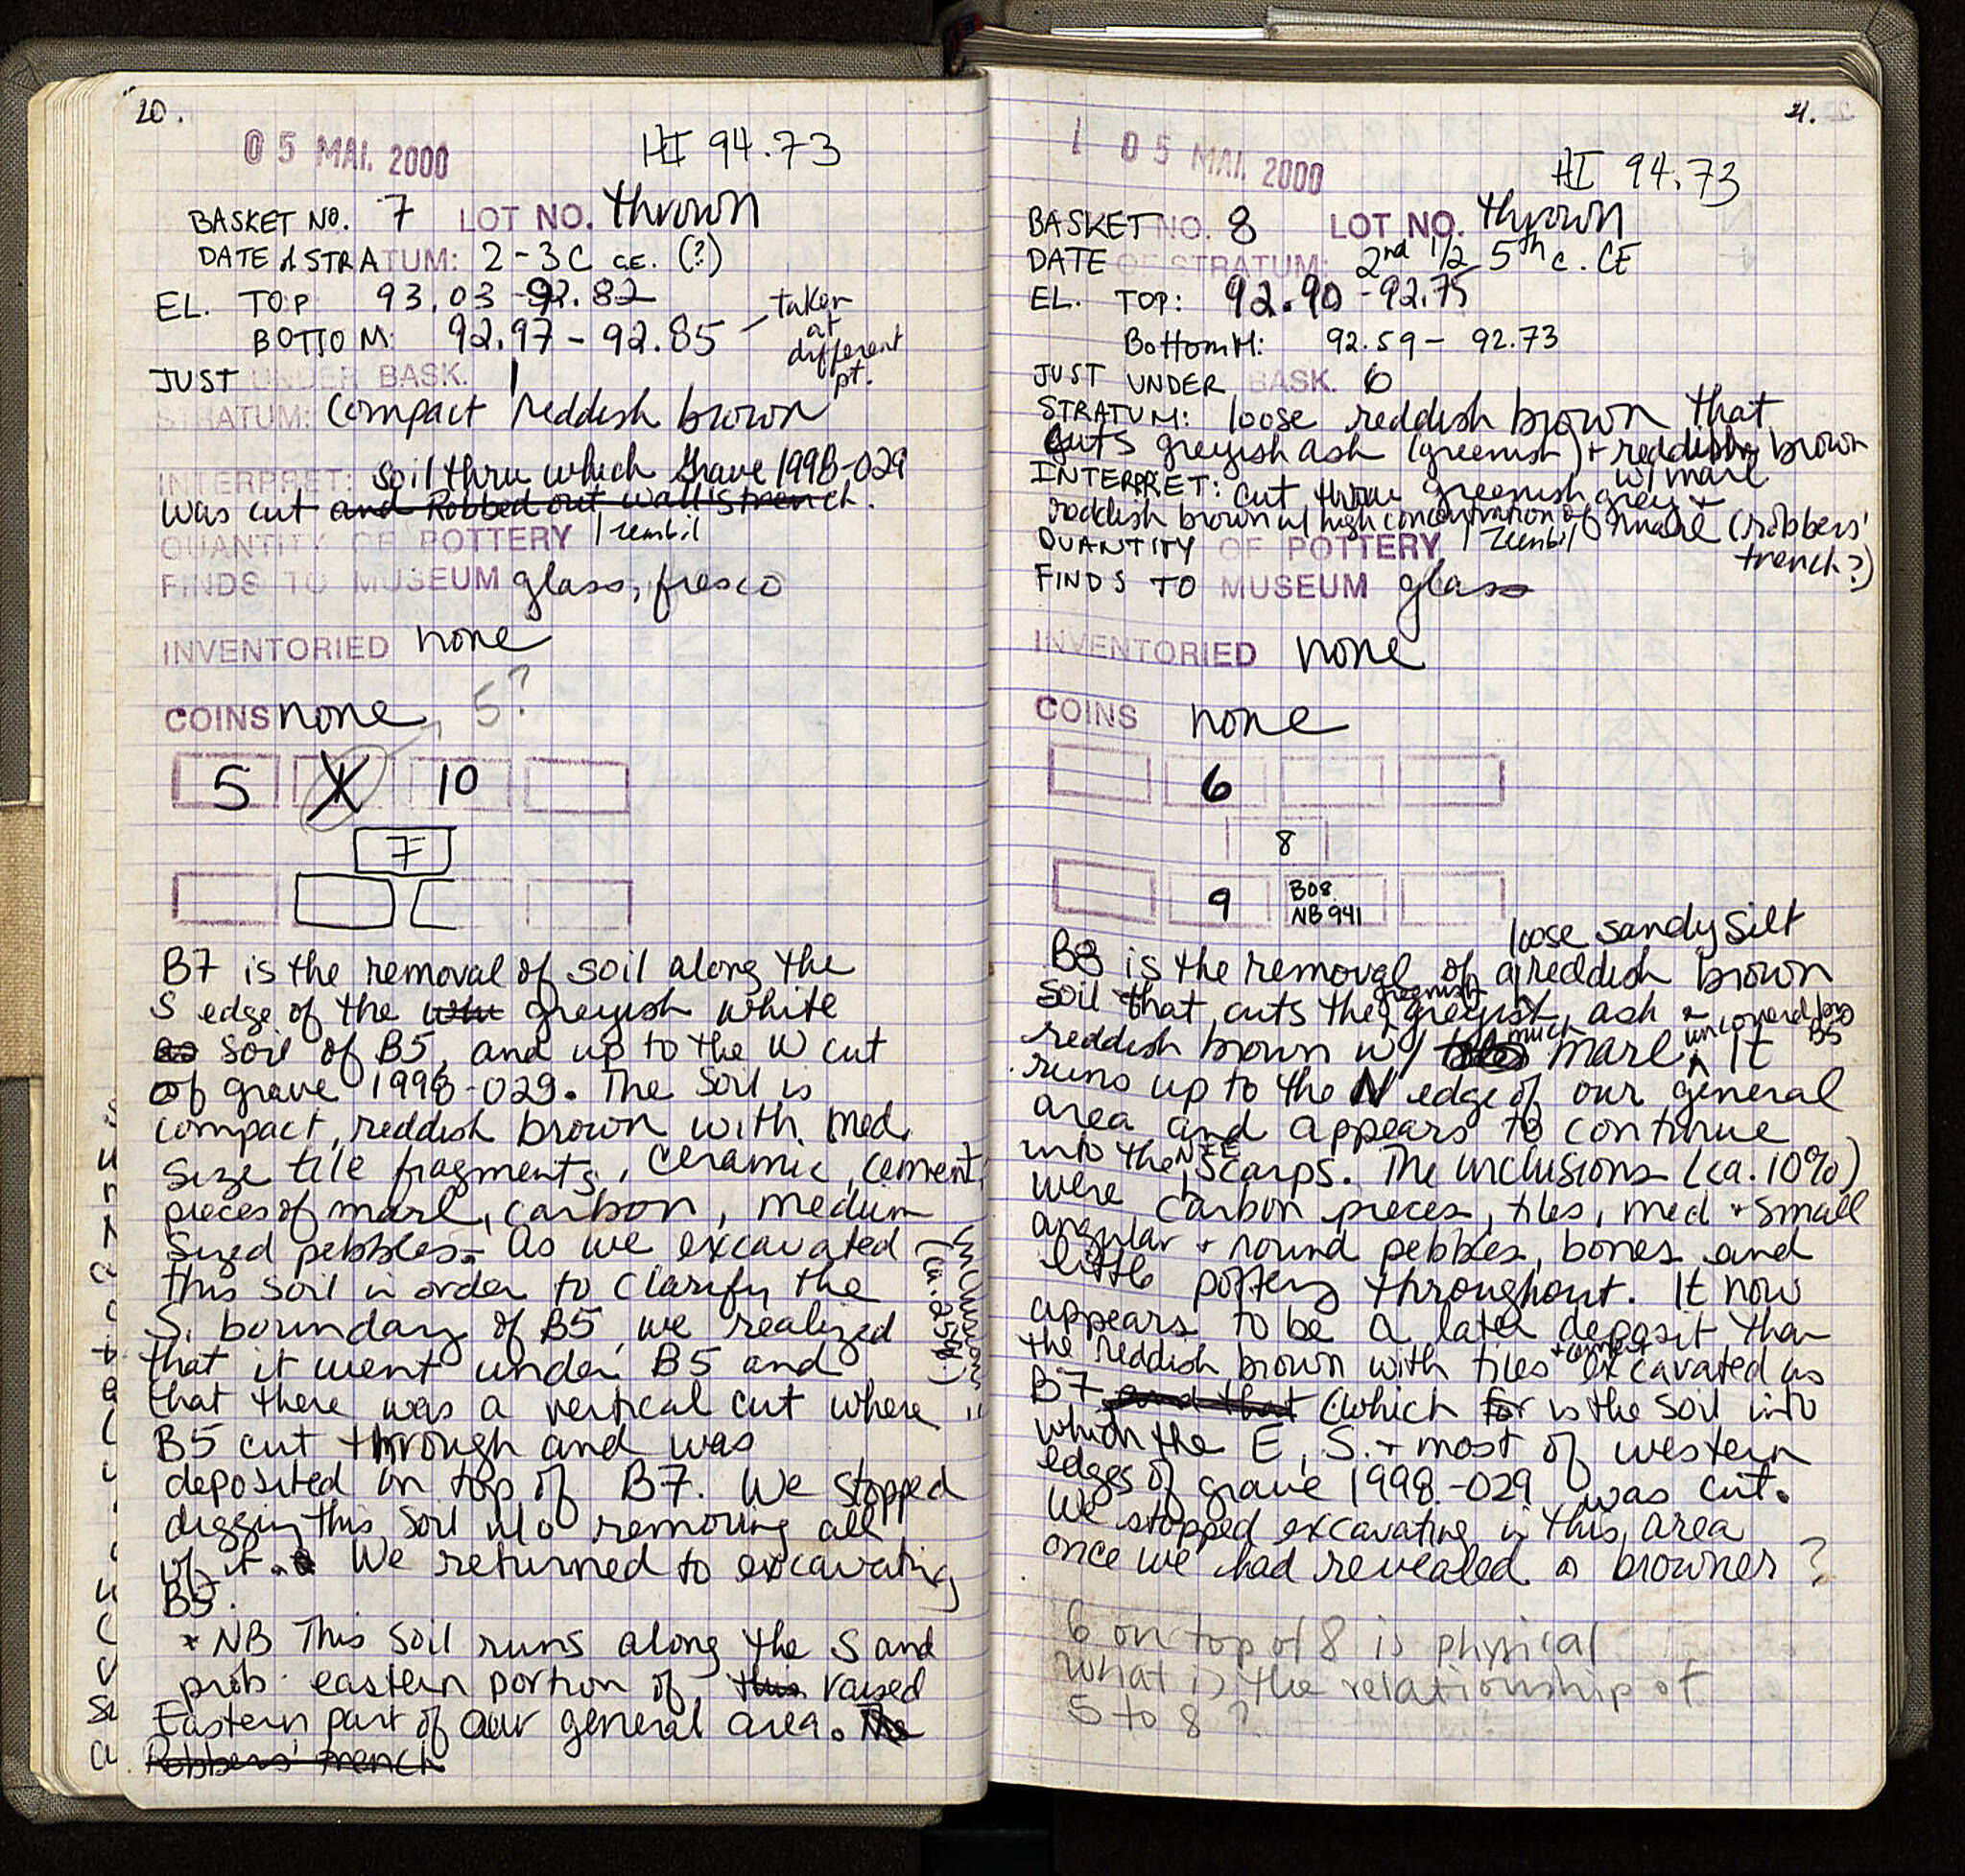 20.
05 MAI. 2000
HI 94.73
BASKET NO. 7 LOT NO. thrown
DATE of STRATUM: 2-3 C C.E. (?)
EL. TOP 93.03 - 92.82
BOTTOM: 92.97 - 92.85 — taken at different pt.
JUST UNDER BASK. 1
STRATUM: compact reddish brown
INTERPRET: soil thru which Grave 1998-029
was cut and Robbed out wall's trench.
QUANTITY OF POTTERY 1 zembil
FINDS TO MUSEUM glass, fresco
INVENTORIED none
COINS none, 5?
5 X 10
7
B7 is the removal of soil along the
S edge of the greyish white
soil of B5, and up to the W cut
of grave 1998-029. The soil is
compact, reddish brown with med.
size tile fragments, ceramic, cement,
pieces of marl, carbon, medium
sized pebbles. As we excavated
this soil in order to clarify the
S. boundary of B5, we realized
that it went under B5 and
that there was a vertical cut where
B5 cut through and was
deposited on top of B7. We stopped
digging this soil w/o removing all
of it. We returned to excavating
B5.
inclusions = (ca. 25%)
* NB This soil runs along the S and
prob. eastern portion of this raised
Eastern part of our general area. The
Robbers' trench
21.
1 05 MAI. 2000
HI 94.73
BASKET NO. 8 LOT NO. thrown
DATE OF STRATUM: 2nd 1/2 5th c. CE
EL. TOP: 92.90 - 92.75
BOTTOM: 92.59 - 92.73
JUST UNDER BASK. 6
STRATUM: loose reddish brown that
cuts greyish ash (greenish) + reddish brown
w/ marl
INTERPRET: cut thru greenish grey +
reddish brown w/ high concentration of marl (robbers'
trench?)
QUANTITY OF POTTERY 1 zembil
FINDS TO MUSEUM glass
INVENTORIED none
COINS none
6
8
9 B08 NB 941
loose sandy silt
B8 is the removal of a reddish brown
soil that cuts the greenish greyish ash +
reddish brown w/ much marl uncovered by B5. It
runs up to the N edge of our general
area and appears to continue
into the N + E scarps. The inclusions (ca. 10%)
were carbon pieces, tiles, med + small
angular + round pebbles, bones and
little pottery throughout. It now
appears to be a later deposit than
the reddish brown with tiles + cement excavated as
B7 and that (which for is the soil into
which the E, S. + most of western
edges of grave 1998-029 was cut.
We stopped excavating in this area
once we had revealed a browner ?
6 on top of 8 is physical
what is the relationship of
5 to 8?